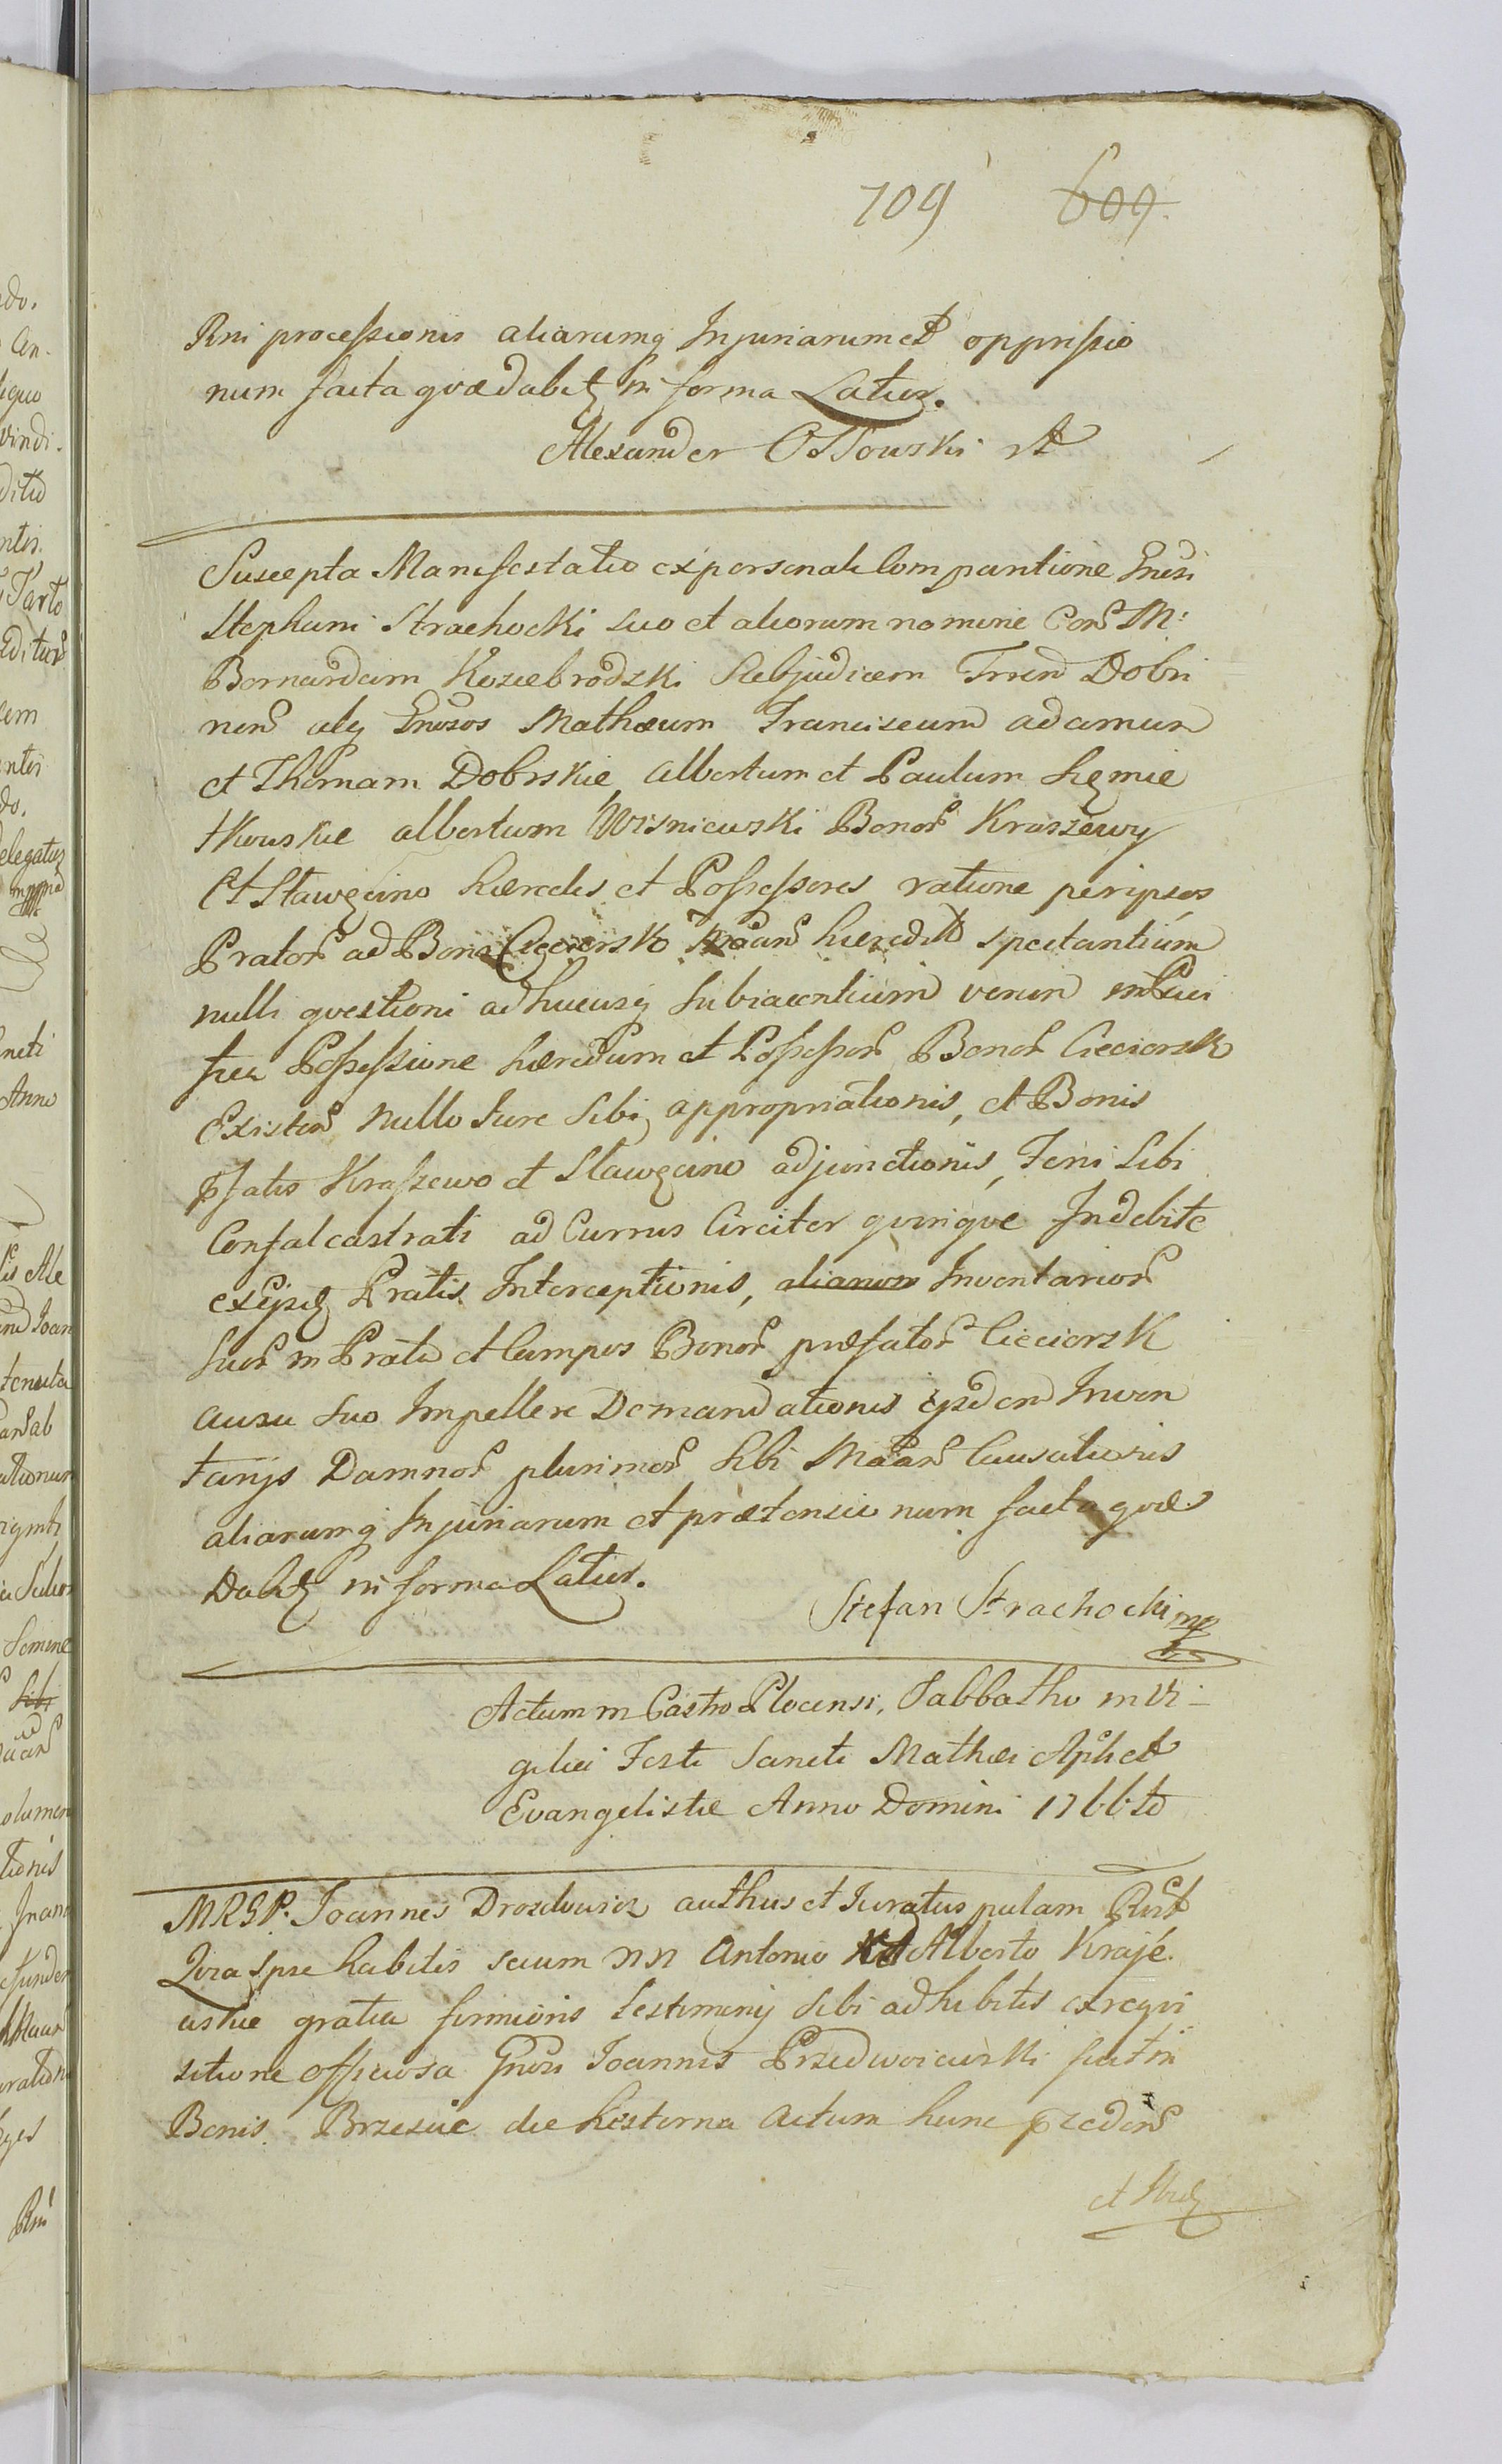 109 609.
Rni processionis aliarumq Injuriarum et oppressio
num facta quæ dabitz in forma Latior.
Alexander Ossowski
Suscepta Manifestatio ex personali Comparitione Gnosi
Stephani Strachocki suo et aliorum nomine Con M:
Bernardum Koziebrodzki Subjudicem Trrem Dobri
nen alq Gnosos Mathæum Franciscum adamum
et Thomam Dobrskie, albertum et Paulum
tkowskie albertum Wisniewski Bonor Kraszewy
Et Stawęcino hæredes et Possessores ratione per ipsos
Prator ad Bona Cieciersk hæredit spectantium
nulli questioni adhucusq subiacentium verum in
sua Possessione hæredum et Possessor Bonor Cieciersk
Existen nullo Iure sibi appropriationis, et Bonis
pfatis Kraszewo et Stawęcino adjunctionis, Feni sibi
Confalcastrati ad Currus Circiter quinque Indebite
ex ejsd Pratis Interceptionis, aliarum Inventarior
suor in Prata et Campos Bonor præfator Cieciersk
ausu suo Impellere Demandationis ejsdem Inven
tarijs Damnor plurimor sibi Causationis
aliarumq Injuriarum et prætensionum facta quæ
Dabitz in forma Latior.
Stefan Strachocki mp
Actum in Castro Plocensi, Sabbatho in Vi-
gilia Festi Sancti Mathæi Apli et
Evangelistæ Anno Domini 1766to
MRGP. Joannes Drozdwicz authus et Iuratus palam
Lira spse habitis secum NN Antonio Et Alberto Kraje
wskie gratia firmioris Testimonij sibi adhibitis ex requi
sitione officiosa Gnosi Joannis Przedwoiewski
Bonis Brzesice die hesterna actum hunc pcedens
et